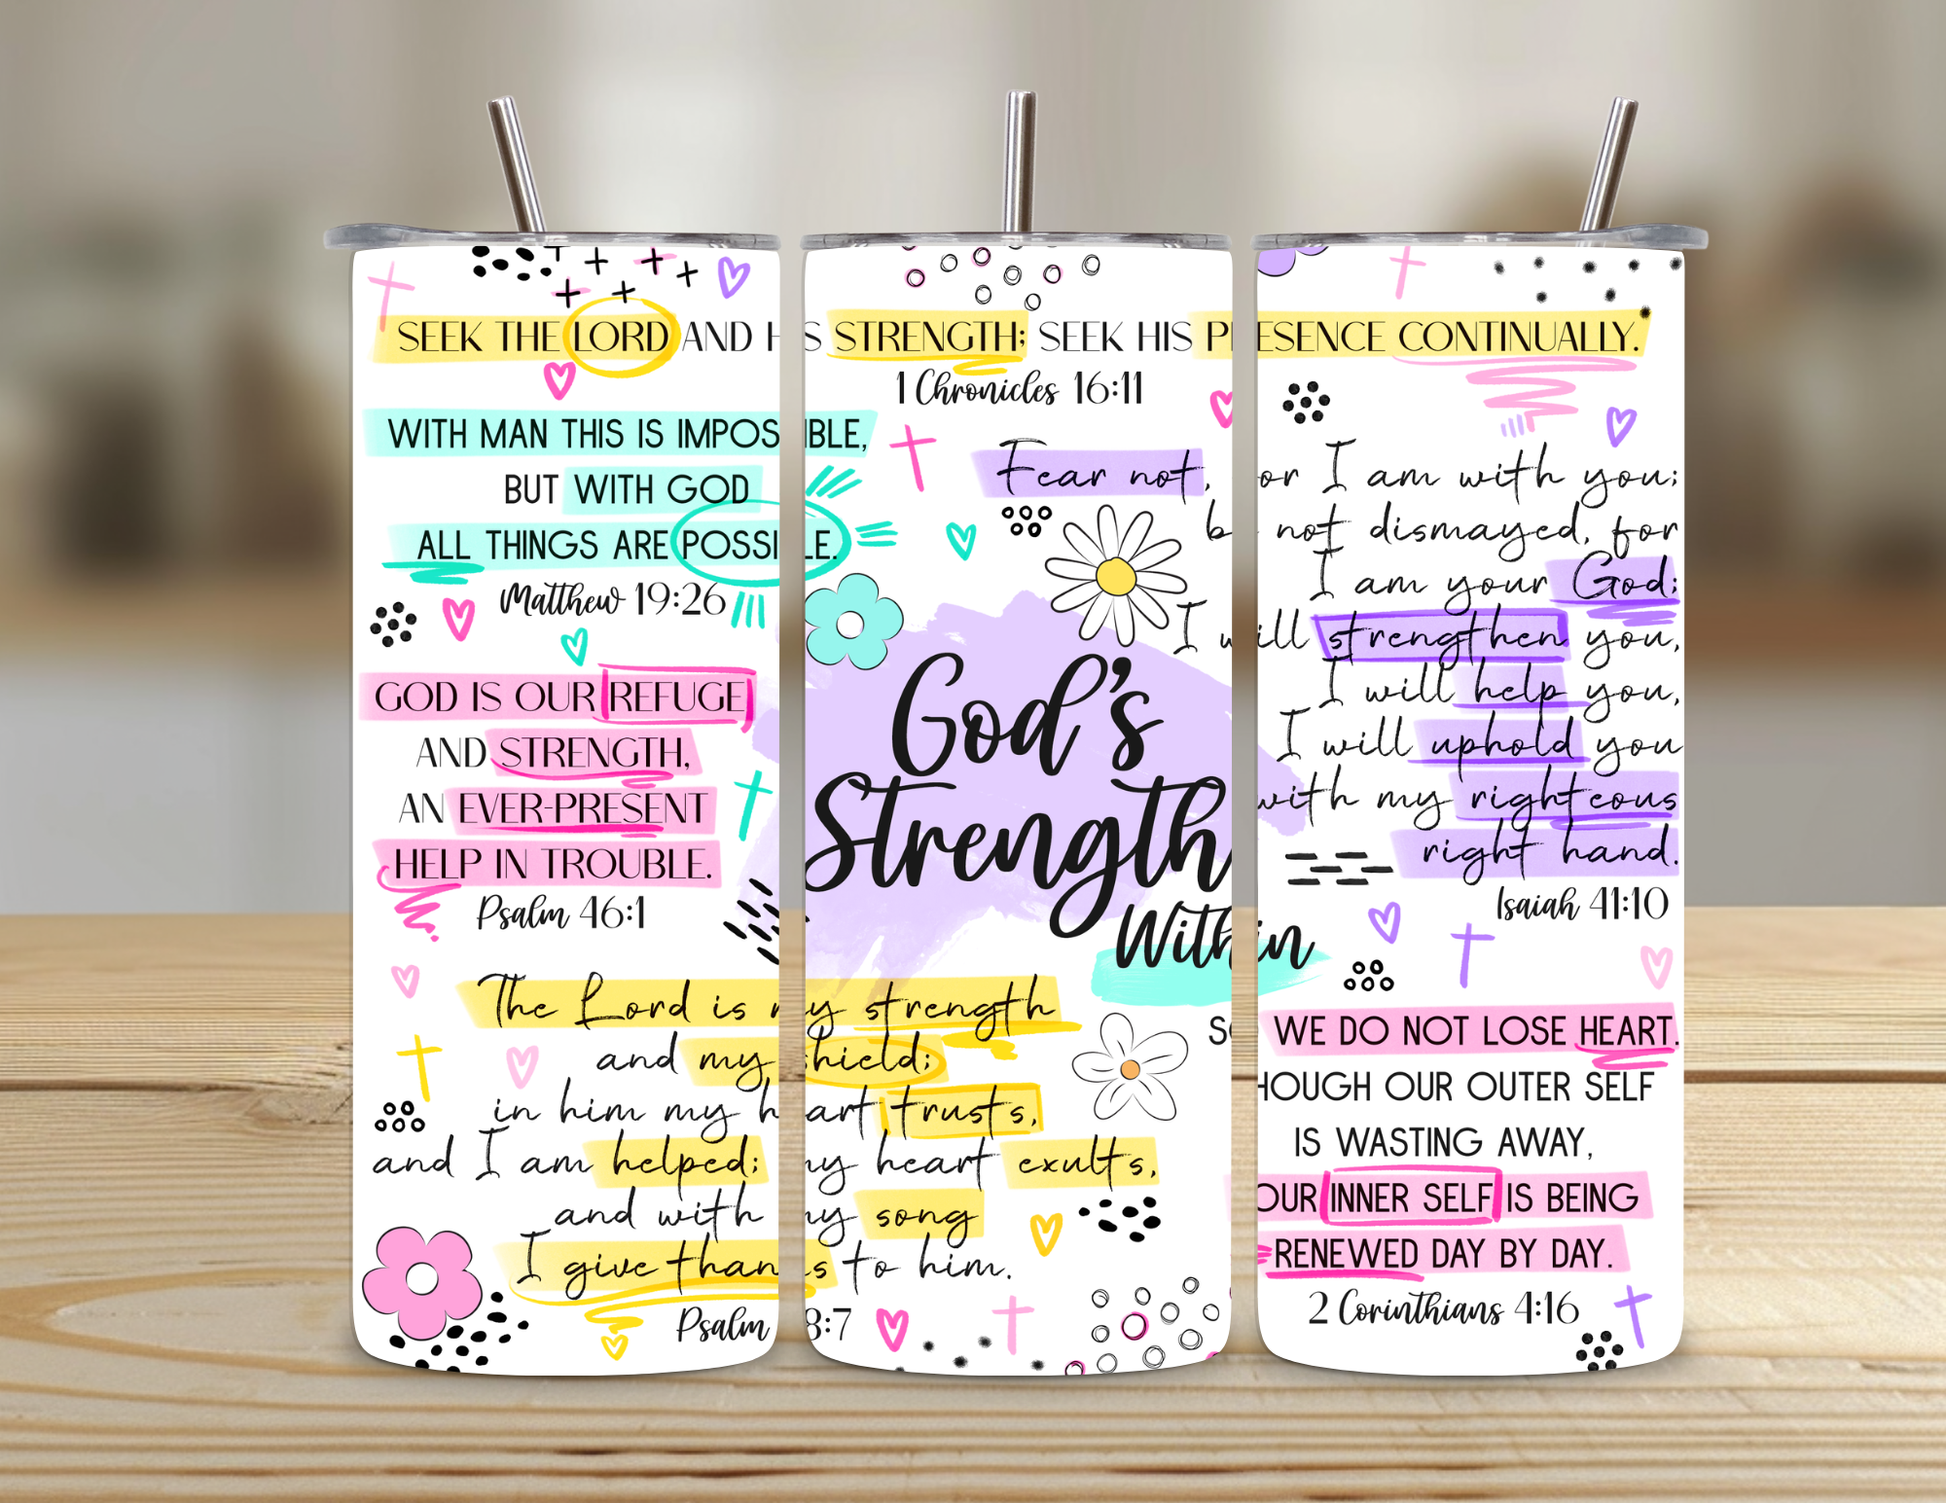 SEEK THE LORD AND H
WITH MAN THIS IS IMPOS
BUT WITH GOD
ALL THINGS ARE POSSI
Matthew 19:26
GOD IS OUR REFUGE
AND STRENGTH,
AN EVER-PRESENT
HELP IN TROUBLE.
Psalm 46:1
The Lord is m
and my
in him my h
and I am helped;
and with
I give than
Psalm
S STRENGTH; SEEK HIS P
1 Chronicles 16:11
IBLE,
LE.
Fear not,
b
I w
God's
Strength
With
y strength
hield;
art trusts,
my heart exults,
my song
s to him.
8:7
SO
ESENCE CONTINUALLY.
or I am with you;
not dismayed, for
I am your God;
ill strengthen you,
I will help you,
I will uphold you
with my righteous
right hand.
Isaiah 41:10
in
WE DO NOT LOSE HEART.
HOUGH OUR OUTER SELF
IS WASTING AWAY,
OUR INNER SELF IS BEING
RENEWED DAY BY DAY.
2 Corinthians 4:16